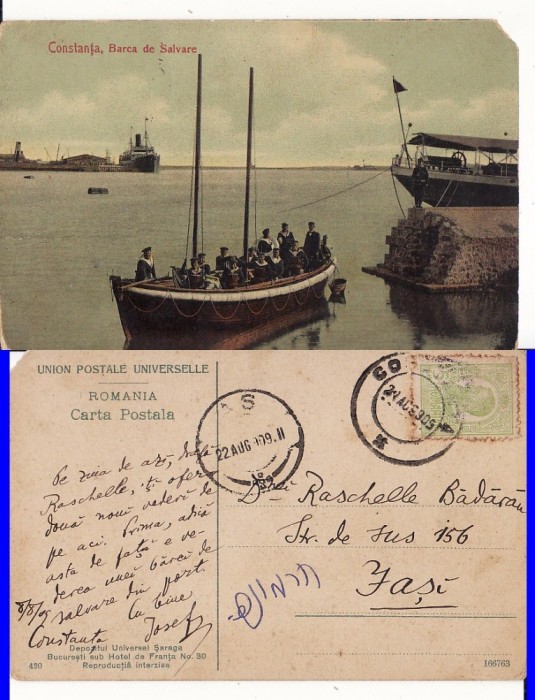 Constanța, Barca de Salvare
UNION POSTALE UNIVERSELLE
ROMANIA
Carta Postala
CO
21 AUG 909
S
22 AUG 909. 11
Pe ziua de azi, dragă
Raschelle, îți ofer
două noui vederi de
pe aci. Prima, adică
asta de față e ve-
derea unei bărci de
salvare din port.
Cu bine
8/8/09
Constanța Josef
D-rei Raschelle Bădărău
Str. de sus 156
Jași
Depozitul Universel Șaraga
București sub Hotel de Franța No. 30
Reproducția interzisa
430
166763